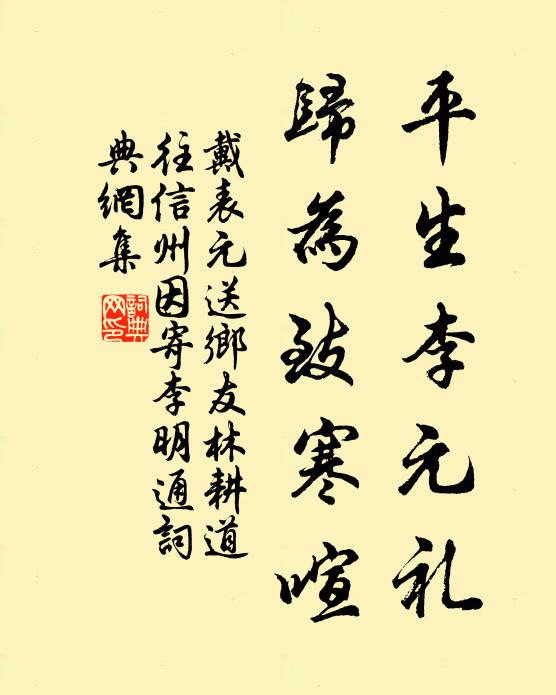 平生李元礼
歸為致寒喧
戴表元送鄉友林耕道
往信州因寄李明通詞
典網集
詞典網印